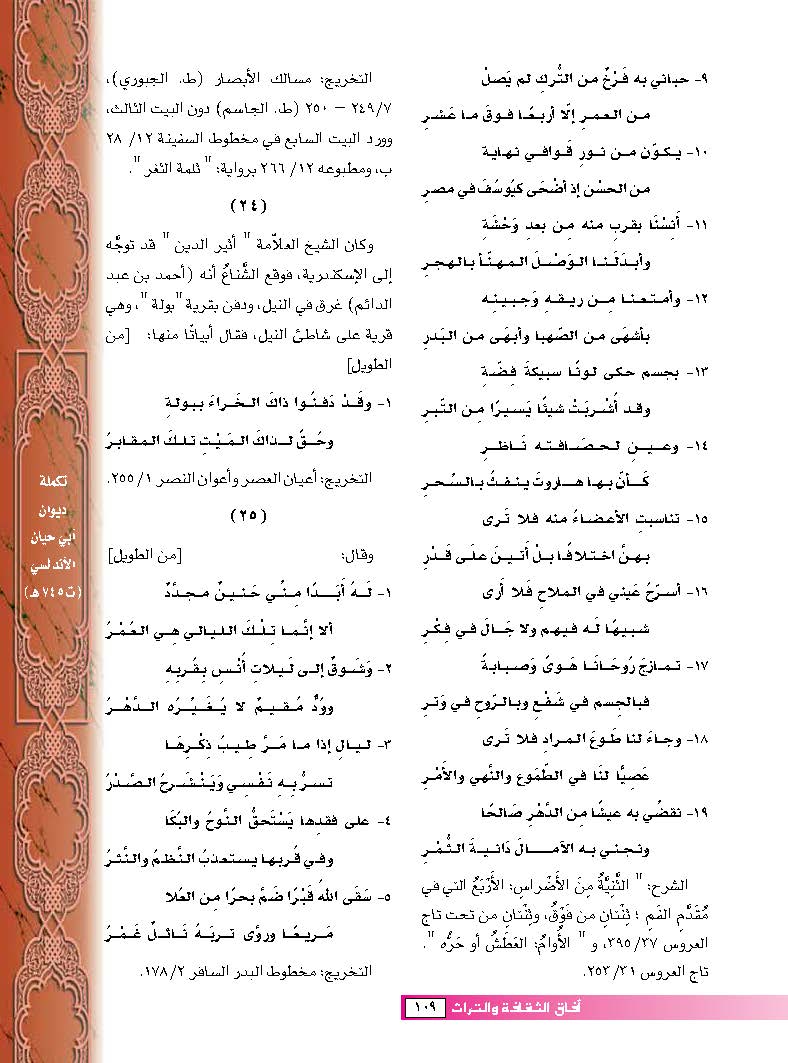 ٩- حباني به فَرْخٌ من التُّركِ لم يَصلْ
من العمرِ إلّا أربعًا فوقَ ما عَشْرِ
١٠- يكوّن من نورٍ قَوافي نهاية
من الحسْن إذ أضْحَى كيُوسُفَ في مصرِ
١١- أَنِسْنَا بقربٍ منه مِن بعدِ وَحْشَةٍ
وأبدَلَنا الوَصْلَ المهنّأ بالهجرِ
١٢- وأمتعنا مِن ريقهِ وَجبينِه
بأشهَى من الصَهبا وأبهَى من البَدرِ
١٣- بجسمٍ حكى لونًا سبيكةَ فِضّةٍ
وقد أُشْرِبَتْ شيئًا يَسيرًا مِن التّبرِ
١٤- وعينٍ لحصَافته نَاظرٍ
كَأنّ بها هاروتَ ينفثُ بالسِّحرِ
١٥- تناسبتِ الأعضاءُ منه فلا تَرى
بهنَّ اختلافًا بلْ أتينَ علَى قَدْرِ
١٦- أسرّحُ عَيني في الملاحِ فَلا أرى
شبيهًا لَه فيهم ولا جَالَ في فِكْرِ
١٧- تمازجَ رُوحَانَا هَوىً وَصبابةً
فبالجسمِ في شَفْعٍ وبالرّوحِ في وَترِ
١٨- وجاءَ لنا طوعَ المرادِ فلا تَرى
عَصِيًّا لنَا في الطّمَوعِ والنَّهي والأمْرِ
١٩- نقضّي به عيشًا مِن الدّهْرِ صَالحًا
ونجني به الآمالَ دَانيةَ الثّمْرِ
الشرح: " الثَّنِيَّةُ مِنَ الأَضْراسِ: الأَرْبَعُ التي في
مُقَدَّمِ الفَمِ ؛ ثِنْتانِ من فَوْقُ، وثِنْتانِ من تحت تاج
العروس ٣٩٥/٣٧، و " الأُوامُ: العَطَشُ أو حَرُّه ".
تاج العروس ٢٥٣/٣١.
التخريج: مسالك الأبصار (ط. الجبوري)،
٢٤٩/٧ – ٢٥٠ (ط. الجاسم) دون البيت الثالث،
وورد البيت السابع في مخطوط السفينة ١٢/ ٢٨
ب، ومطبوعه ١٢/ ٢٦٦ برواية: " ثلمة الثغر ".
(٢٤)
وكان الشيخ العلاّمة " أثير الدين " قد توجَّه
إلى الإسكندرية، فوقع الشُّناعُ أنه (أحمد بن عبد
الدائم) غرق في النيل، ودفن بقرية "بولة "، وهي
قرية على شاطئ النيل، فقال أبياتًا منها: [من
الطويل]
١- وقَدْ دَفنُوا ذاكَ الخَراءَ ببولةٍ
وحُقَّ لذاكَ المَيْتِ تلكَ المقابرُ
التخريج: أعيان العصر وأعوان النصر ١/ ٢٥٥.
(٢٥)
وقال: [من الطويل]
١- لَهُ أبَدًا مِنِّي حَنينٌ مجدَّدٌ
ألا إنَّما تِلْكَ الليالي هِي العُمْرُ
٢- وَشَوقٌ إلى لَيلاتِ أُنْسٍ بِقُربِهِ
وَودٌّ مُقيمٌ لا يُغَيِّرُه الدَّهْرُ
٣- ليالٍ إذا ما مَرَّ طِيبُ ذِكْرِهَا
تسرُّ بِهِ نَفْسِي وَيَنْشَرحُ الصَّدْرُ
٤- على فقدِها يَسْتَحقُّ النَّوحُ والبُكَا
وفي قُربها يستعذبُ النَّظمُ والنَّثرُ
٥- سَقَى اللهُ قَبْرًا ضَمَّ بحرًا مِن العُلا
مَريعًا وروَّى تربَهُ نَائلٌ غَمْرُ
التخريج: مخطوط البدر السافر ١٧٨/٢.
تكملة
ديوان
أبي حيان
الأندلسي
(ت٧٤٥هـ)
آفاق الثقافة والتراث ١٠٩